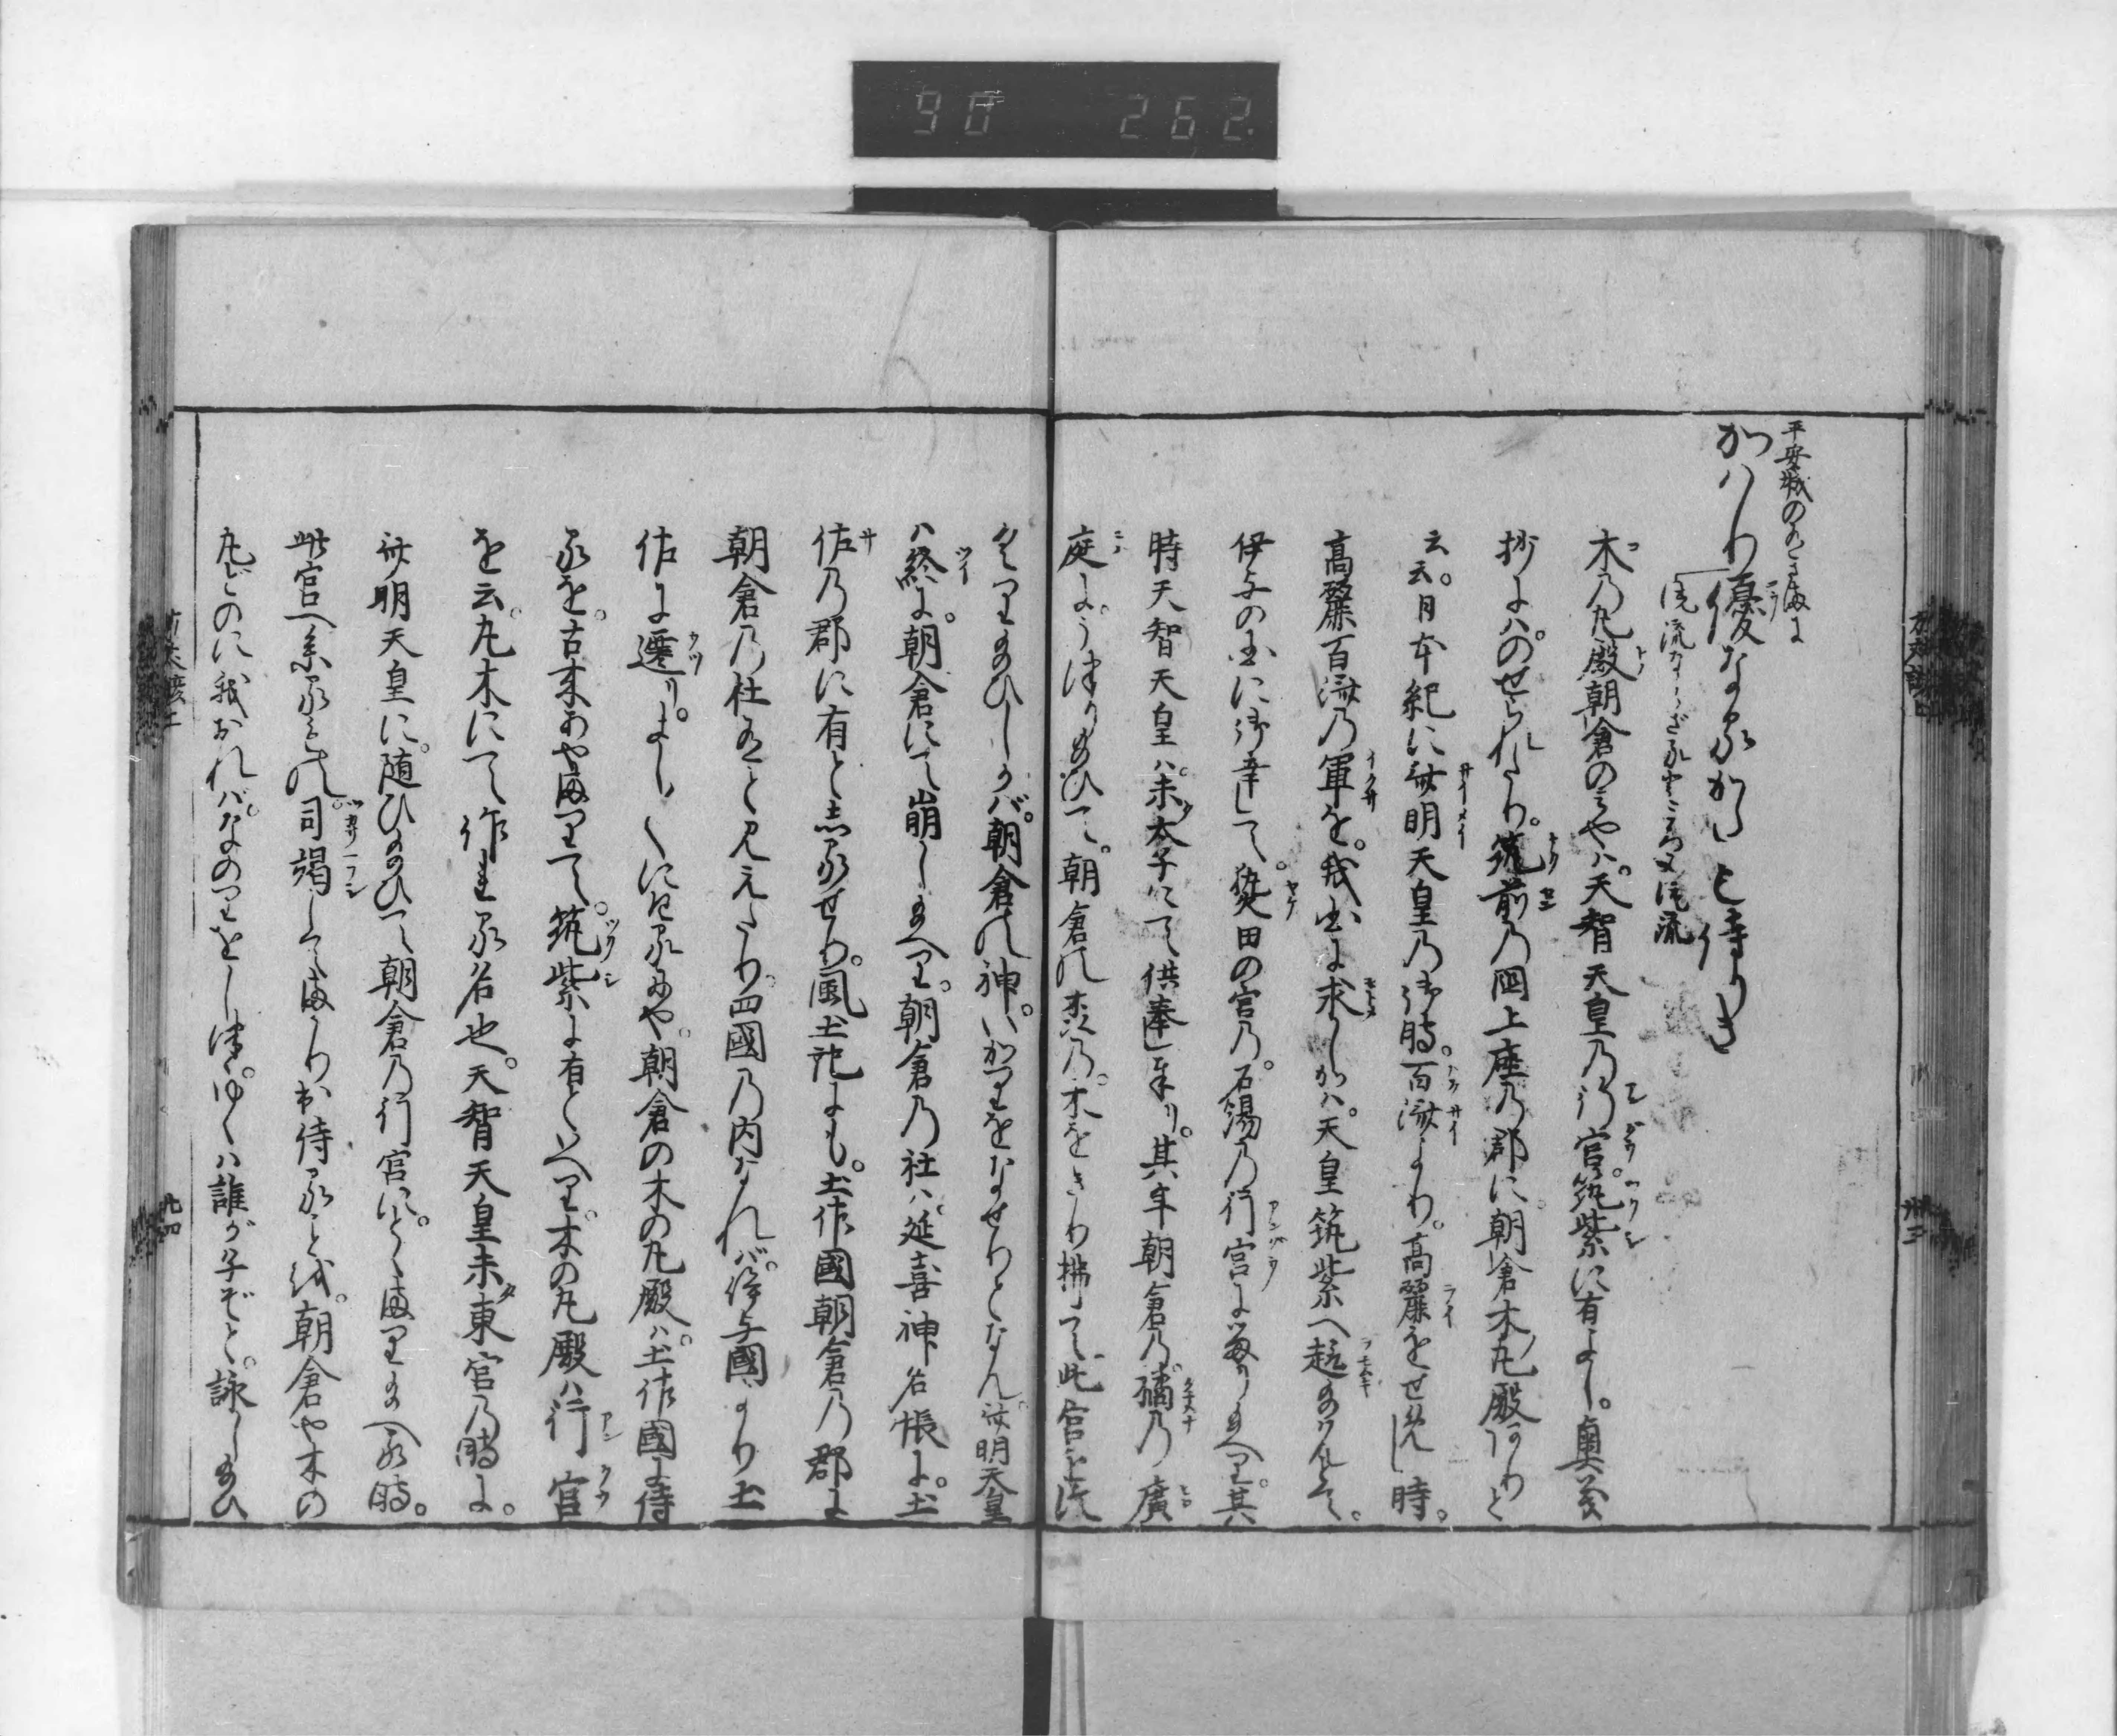 90 262
平安城のありさまに
かはり優なるかたも侍りき
流流ならざるところ又流流
木乃丸殿朝倉のみやハ。天智天皇乃行宮。筑紫に有よし。奥義
抄にハのせられたり。筑前乃國上座乃郡に。朝倉木ノ丸殿ありと
云云。日本紀に斉明天皇乃御時。百済より。高麗をせめし時。
高麗百済乃軍を。我国に求しかハ。天皇筑紫へ趣給ケルとて。
伊与の国に御幸して。熟田の宮乃。石湯乃行宮に留り給へり。其
時天智天皇ハ。未太子にて供奉し奉リ。其年朝倉乃。橘乃廣
庭に。うつり給ひて。朝倉の森乃。木をきり掃て此宮を造
らせ給ひしかバ。朝倉の神。いかりをなせりとなん。斉明天皇
ハ終に。朝倉にて崩し給へり。朝倉乃社ハ。延喜神名帳に。土
佐乃郡に有としるせり。風土記にも。土佐國朝倉乃郡に
朝倉乃社有と見えたり。四國乃内なれバ。伊与國より土
佐に遷リ。ましくにけるにや。朝倉の木の丸殿ハ。土佐國に侍
るを。古来あやまりて。筑紫に有といへり。木の丸殿ハ行宮
を云。丸木にて作れる名也。天智天皇未東宮乃時に。
斉明天皇に。随ひ給ひて朝倉乃行宮に。とゝまり給へる時。
此宮へ参るもの。司謁してまかり出侍るとき。朝倉や木の
丸どのに我おれバ。なのりをしつゝ。ゆくハ誰が子ぞと。詠し給ひ
九四